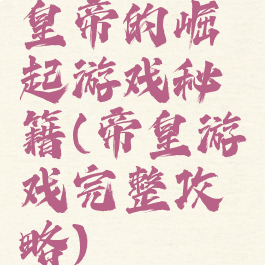 皇帝的崛
起游戏秘
籍(帝皇游
戏完整攻
略)